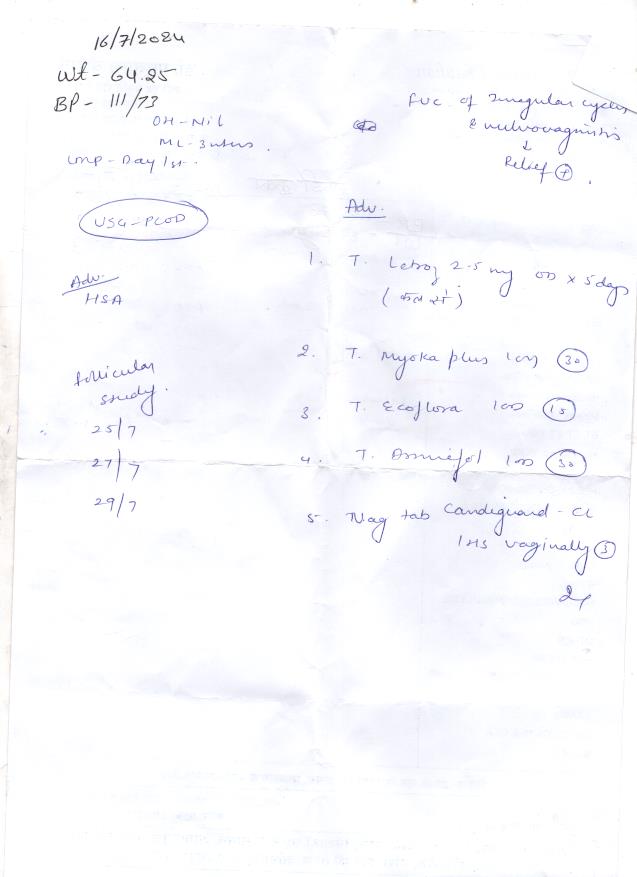 16/7/2024
Wt - 64.25
BP - 111/73
OH - Nil
ML - 3
LMP - Day 1st.
USG - PCOD
Adv.
HSA
follicular
study.
25/7
27/7
29/7
FUC of Irregular cycles
& vulvovaginitis
↓
Relief +
Adv.
1. T. Letroz 2.5 mg OD x 5 days
( कल से )
2. T. Myoka plus 1OD 30
3. T. Ecoflora 1OD 15
4. T. 1OD 30
5. Vag tab Candiguard - CL
1HS vaginally 3